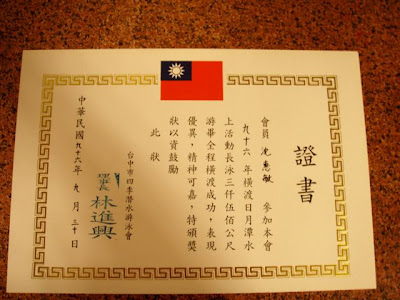 證書
會員 沈惠敏 參加本會
九十六年橫渡日月潭水
上活動長泳三仟伍佰公尺
游畢全程橫渡成功，表現
優異，精神可嘉，特頒獎
狀以資鼓勵
此狀
台中市四季潛水游泳會
理事長 林進興
中華民國九十六年九月三十日